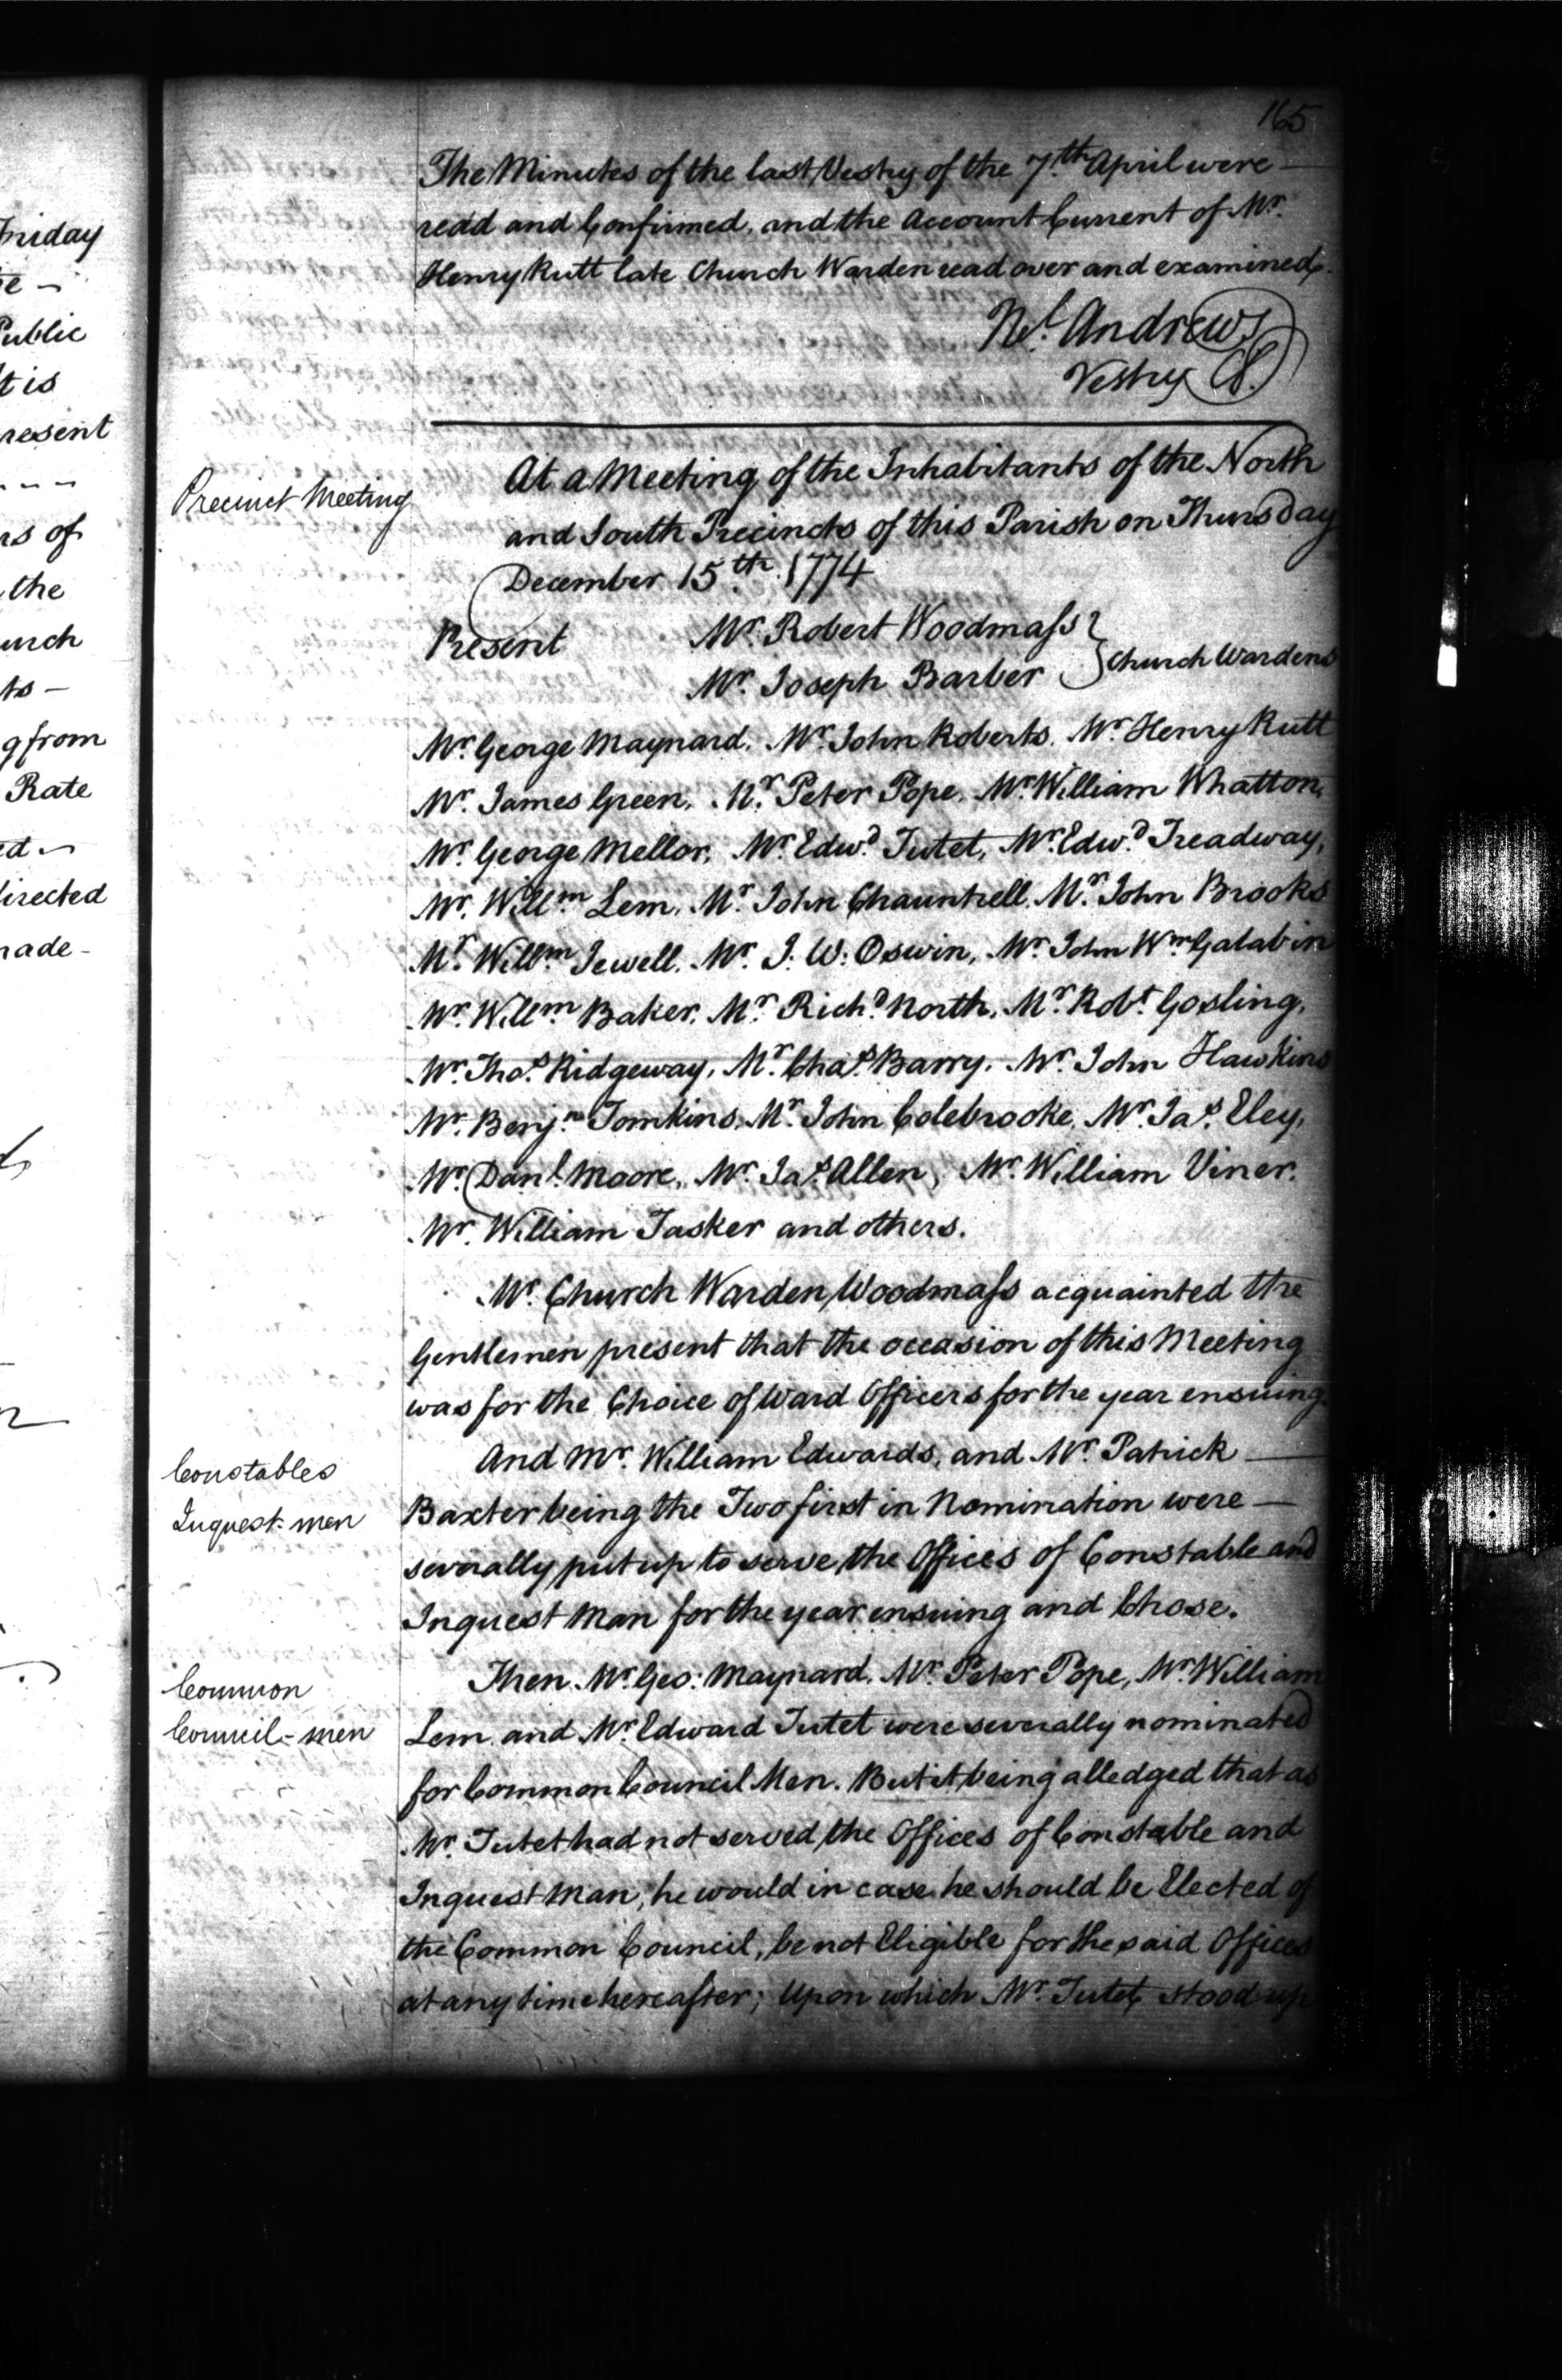 Friday
te -
Public
t is
resent
- - -
rs of
the
urch
ts -
g from
Rate
ed -
directed
made -
165
The Minutes of the last Vestry of the 7.th April were -
read and Confirmed, and the Account Current of Mr.
Henry Rutt late Church Warden read over and examined.
Nl. Andrews
Vestry Cl.
Precinct Meeting
At a Meeting of the Inhabitants of the North
and South Precincts of this Parish on Thursday
December 15th. 1774
Present Mr. Robert Woodmass
Mr. Joseph Barber } Church Wardens
Mr. George Maynard, Mr. John Roberts, Mr. Henry Rutt
Mr. James Green, Mr. Peter Pope, Mr. William Whatton,
Mr. George Mellor, Mr. Edwd. Tutet, Mr. Edwd. Treadway,
Mr. Willm. Lem, Mr. John Chauntrell, Mr. John Brooks
Mr. Willm. Jewell, Mr. J. W: Oswin, Mr. John Wm. Galabin
Mr. Willm. Baker, Mr. Richd. North, Mr. Robt. Gosling,
Mr. Thos. Ridgeway, Mr. Chas. Barry, Mr. John Hawkins
Mr. Benjn. Tomkins, Mr. John Colebrooke, Mr. Jas. Eley,
Mr. Danl. Moore, Mr. Jas. Allen, Mr. William Viner.
Mr. William Tasker and others.
Mr. Church Warden Woodmass acquainted the
Gentlemen present that the occasion of this Meeting
was for the Choice of Ward Officers for the year ensuing.
Constables
Inquest-men
And Mr. William Edwards, and Mr. Patrick -
Baxter being the Two first in Nomination were -
severally put up to serve the Offices of Constable and
Inquest Man for the year ensuing and Chose.
Common
Council-men
Then Mr. Geo: Maynard, Mr. Peter Pope, Mr. William
Lem and Mr. Edward Tutet were severally nominated
for Common Council Men. But it being alledged that as
Mr. Tutet had not served the Offices of Constable and
Inquest Man, he would in case he should be Elected of
the Common Council, be not Eligible for the said Offices
at any time hereafter; Upon which Mr. Tutet stood up